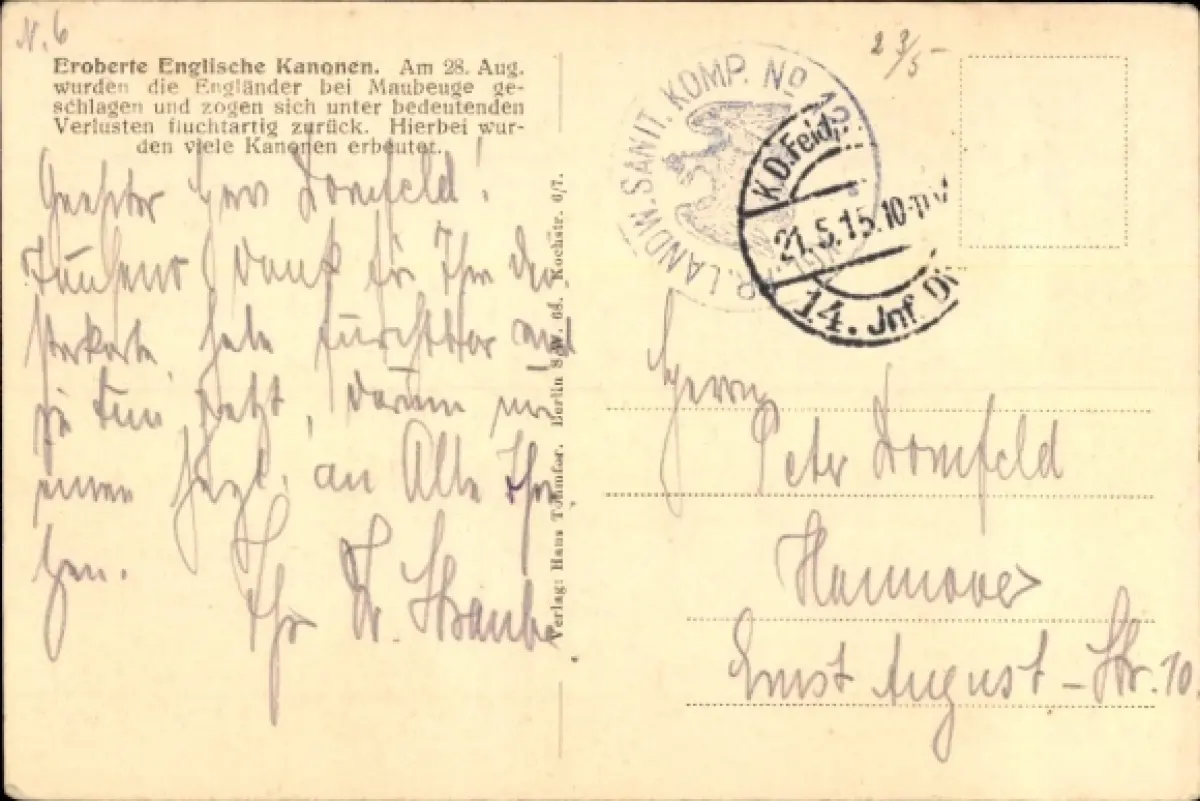 N. 6
Eroberte Englische Kanonen. Am 28. Aug.
wurden die Engländer bei Maubeuge ge-
schlagen und zogen sich unter bedeutenden
Verlusten fluchtartig zurück. Hierbei wur-
den viele Kanonen erbeutet.
Geehrter Herr Dornfeld!
Tausend Dank für Ihre
furchtbar
zu tun jetzt, darum
an Alle
Ihr Dr. Straube
Verlag: Hans Tohmfor. Berlin SW. 68. Kochstr. 6/7.
23/5
R. LANDW. SANIT. KOMP. No
K.D. Feld
21.5.15. 10-11 V
14. Inf. Di
Herrn
Peter Dornfeld
Hannover
Ernst August-Str. 10.